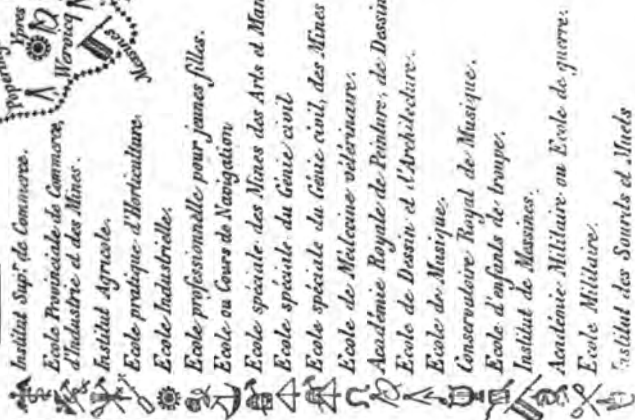 Popering
Ypres
Wervicq
Messines
Institut Supr. de Commerce.
Ecole Provinciale de Commerce,
d'Industrie et des Mines.
Institut Agricole.
Ecole pratique d'Horticulture.
Ecole Industrielle.
Ecole professionnelle pour jeunes filles.
Ecole ou Cours de Navigation
Ecole spéciale des Mines des Arts et Man
Ecole spéciale du Génie civil
Ecole spéciale du Génie civil, des Mines
Ecole de Médecine vétérinaire.
Académie Royale de Peinture, de Dessin
Ecole de Dessin et d'Architecture.
Ecole de Musique.
Conservatoire Royal de Musique.
Ecole d'enfants de troupe.
Institut de Messines.
Académie Militaire ou Ecole de guerre.
Ecole Militaire.
Institut des Sourds et Muets